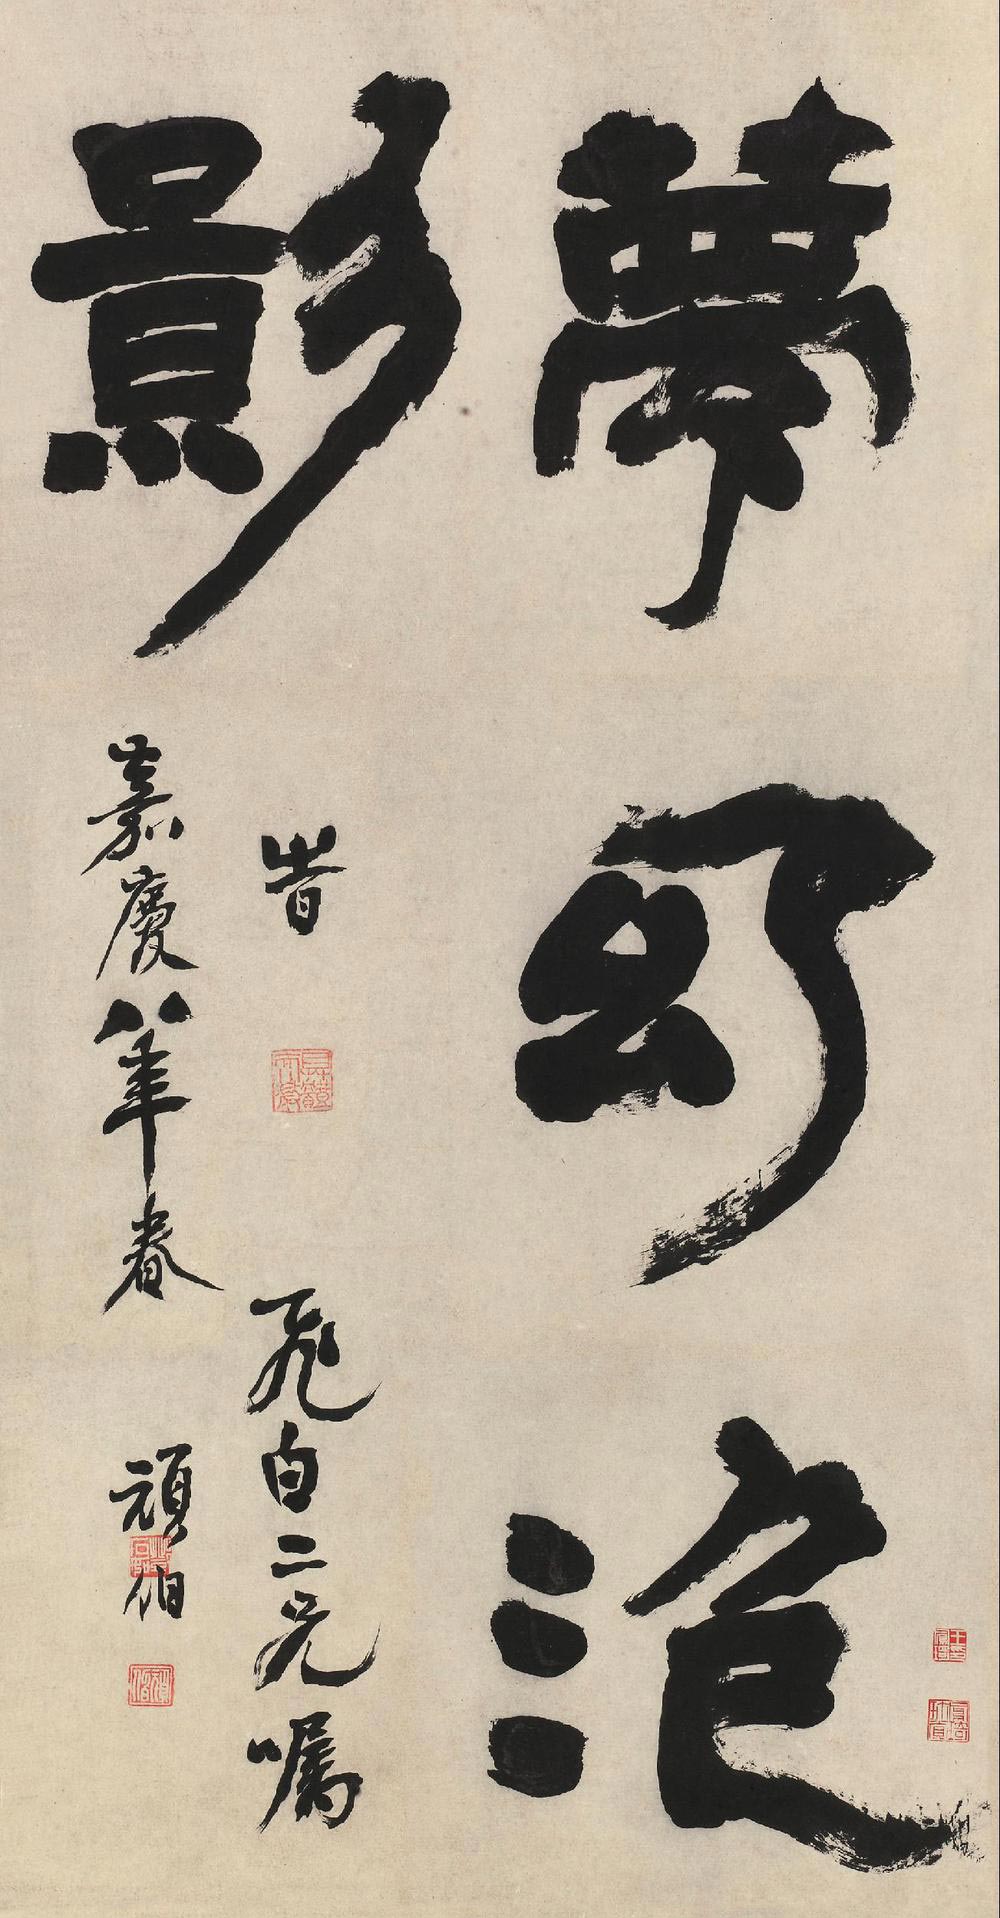 夢幻泡
影
旹
嘉慶八年春
飛白二兄囑
頑伯